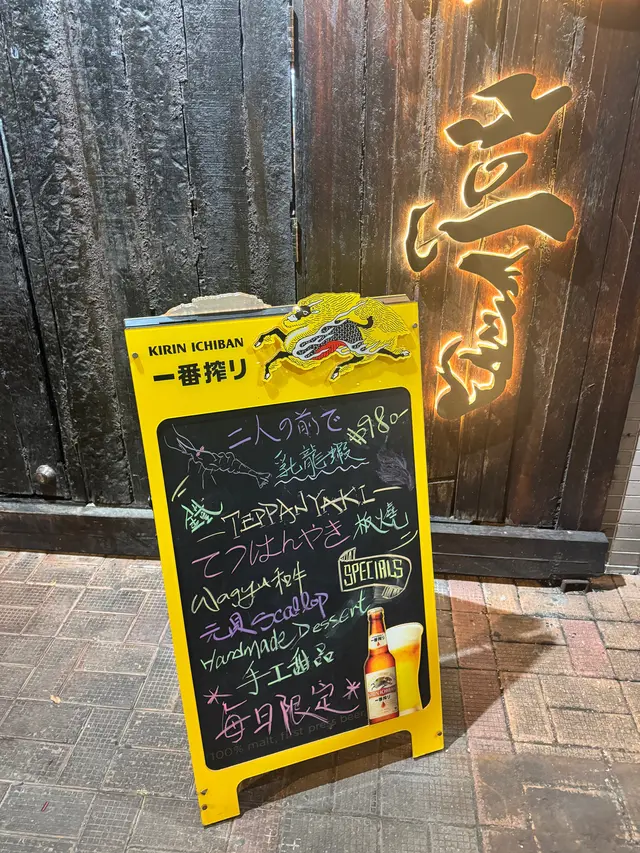 KIRIN ICHIBAN
一番搾り
二人の前で
$980-
龍蝦
TEPPANYAKI
てつはんやき 板燒
Wagyu 和牛
SPECIALS
元貝 Scallop
Handmade Dessert
手工甜品
*每日限定*
100% malt, first press beer